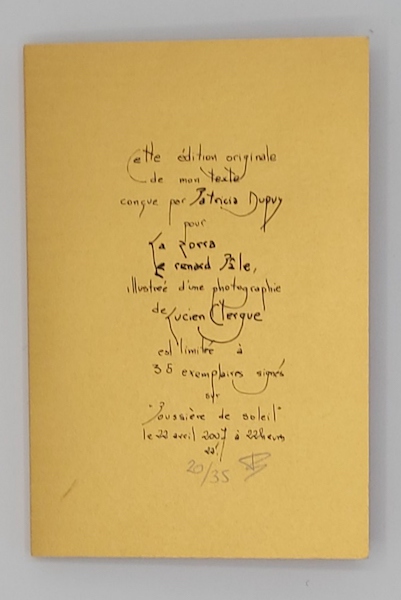 Cette édition originale
de mon texte
conçue par Patricia Dupuy
pour
La Zorra
Le renard Pâle,
illustrée d'une photographie
de Lucien Clergue
est limitée à
35 exemplaires signés
sur
"Poussière de soleil"
le 22 avril 2007 à 22heures
22!
20/35